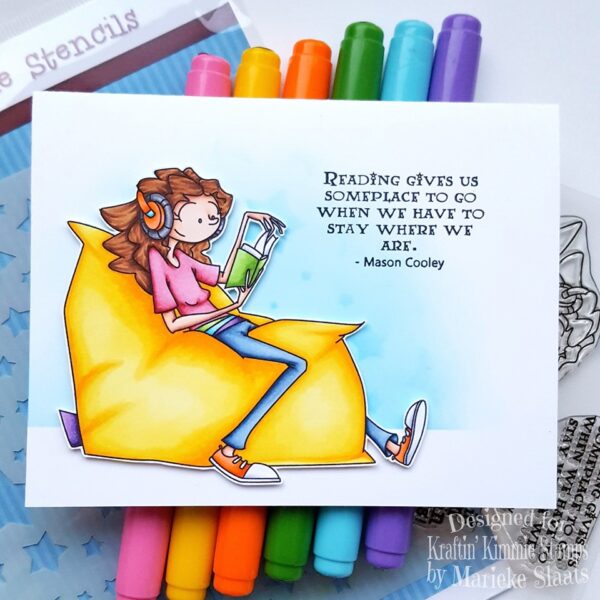 e Stencils
READING GIVES US
SOMEPLACE TO GO
WHEN WE HAVE TO
STAY WHERE WE
ARE.
- Mason Cooley
Designed for
Kraftin' Kimmie Stamps
by Marieke Slaats